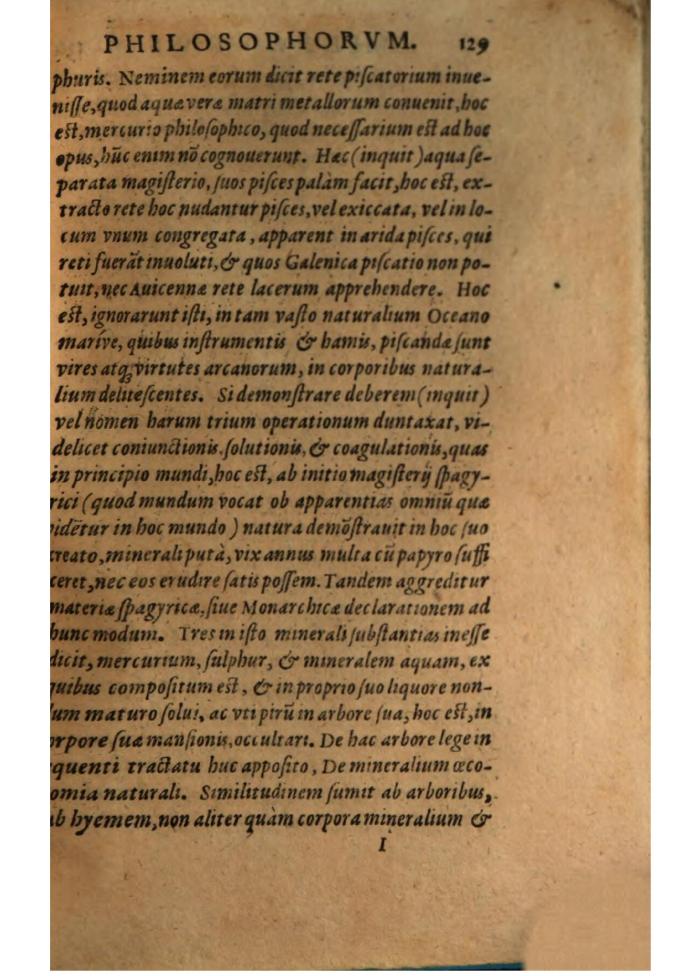 PHILOSOPHORVM. 129
phuris. Neminem eorum dicit rete piſcatorium inue-
niſſe, quod aquæ veræ matri metallorum conuenit, hoc
eſt, mercurio philoſophico, quod neceſſarium eſt ad hoc
opus, hũc enim nõ cognouerunt. Hæc (inquit) aqua ſe-
parata magiſterio, ſuos piſces palàm facit, hoc eſt, ex-
tracto rete hoc nudantur piſces, vel exiccata, vel in lo-
cum vnum congregata, apparent in arida piſces, qui
reti fuerãt inuoluti, & quos Galenica piſcatio non po-
tuit, nec Auicennæ rete lacerum apprehendere. Hoc
eſt, ignorarunt iſti, in tam vaſto naturalium Oceano
marive, quibus inſtrumentis & hamis, piſcandæ ſunt
vires atq; virtutes arcanorum, in corporibus natura-
lium deliteſcentes. Si demonſtrare deberem (inquit)
vel nomen harum trium operationum duntaxat, vi-
delicet coniunctionis, ſolutionis, & coagulationis, quas
in principio mundi, hoc eſt, ab initio magiſterij ſpagy-
rici (quod mundum vocat ob apparentias omniũ quæ
idẽtur in hoc mundo) natura demõſtrauit in hoc ſuo
reato, minerali putà, vix annus multa cũ papyro ſuffi
ceret, nec eos erudire ſatis poſſem. Tandem aggreditur
materiæ ſpagyricæ, ſiue Monarchicæ declarationem ad
hunc modum. Tres in iſto minerali ſubſtantias ineſſe
dicit, mercurium, ſulphur, & mineralem aquam, ex
uibus compoſitum eſt, & in proprio ſuo liquore non-
um maturo ſolui, ac vti pirũ in arbore ſua, hoc eſt, in
rpore ſuæ manſionis, occultari. De hac arbore lege in
quenti tractatu huc appoſito, De mineralium œco-
omia naturali. Similitudinem ſumit ab arboribus,
b hyemem, non aliter quàm corpora mineralium &
I